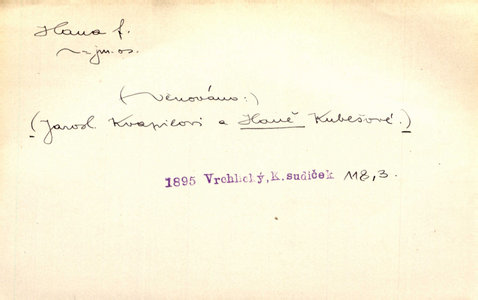 Hana f.
~ jm. os.
(Věnováno:)
(Jarosl. Kvapilovi a Haně Kubešové.)
1895 Vrchlický, K. sudiček 118,3.